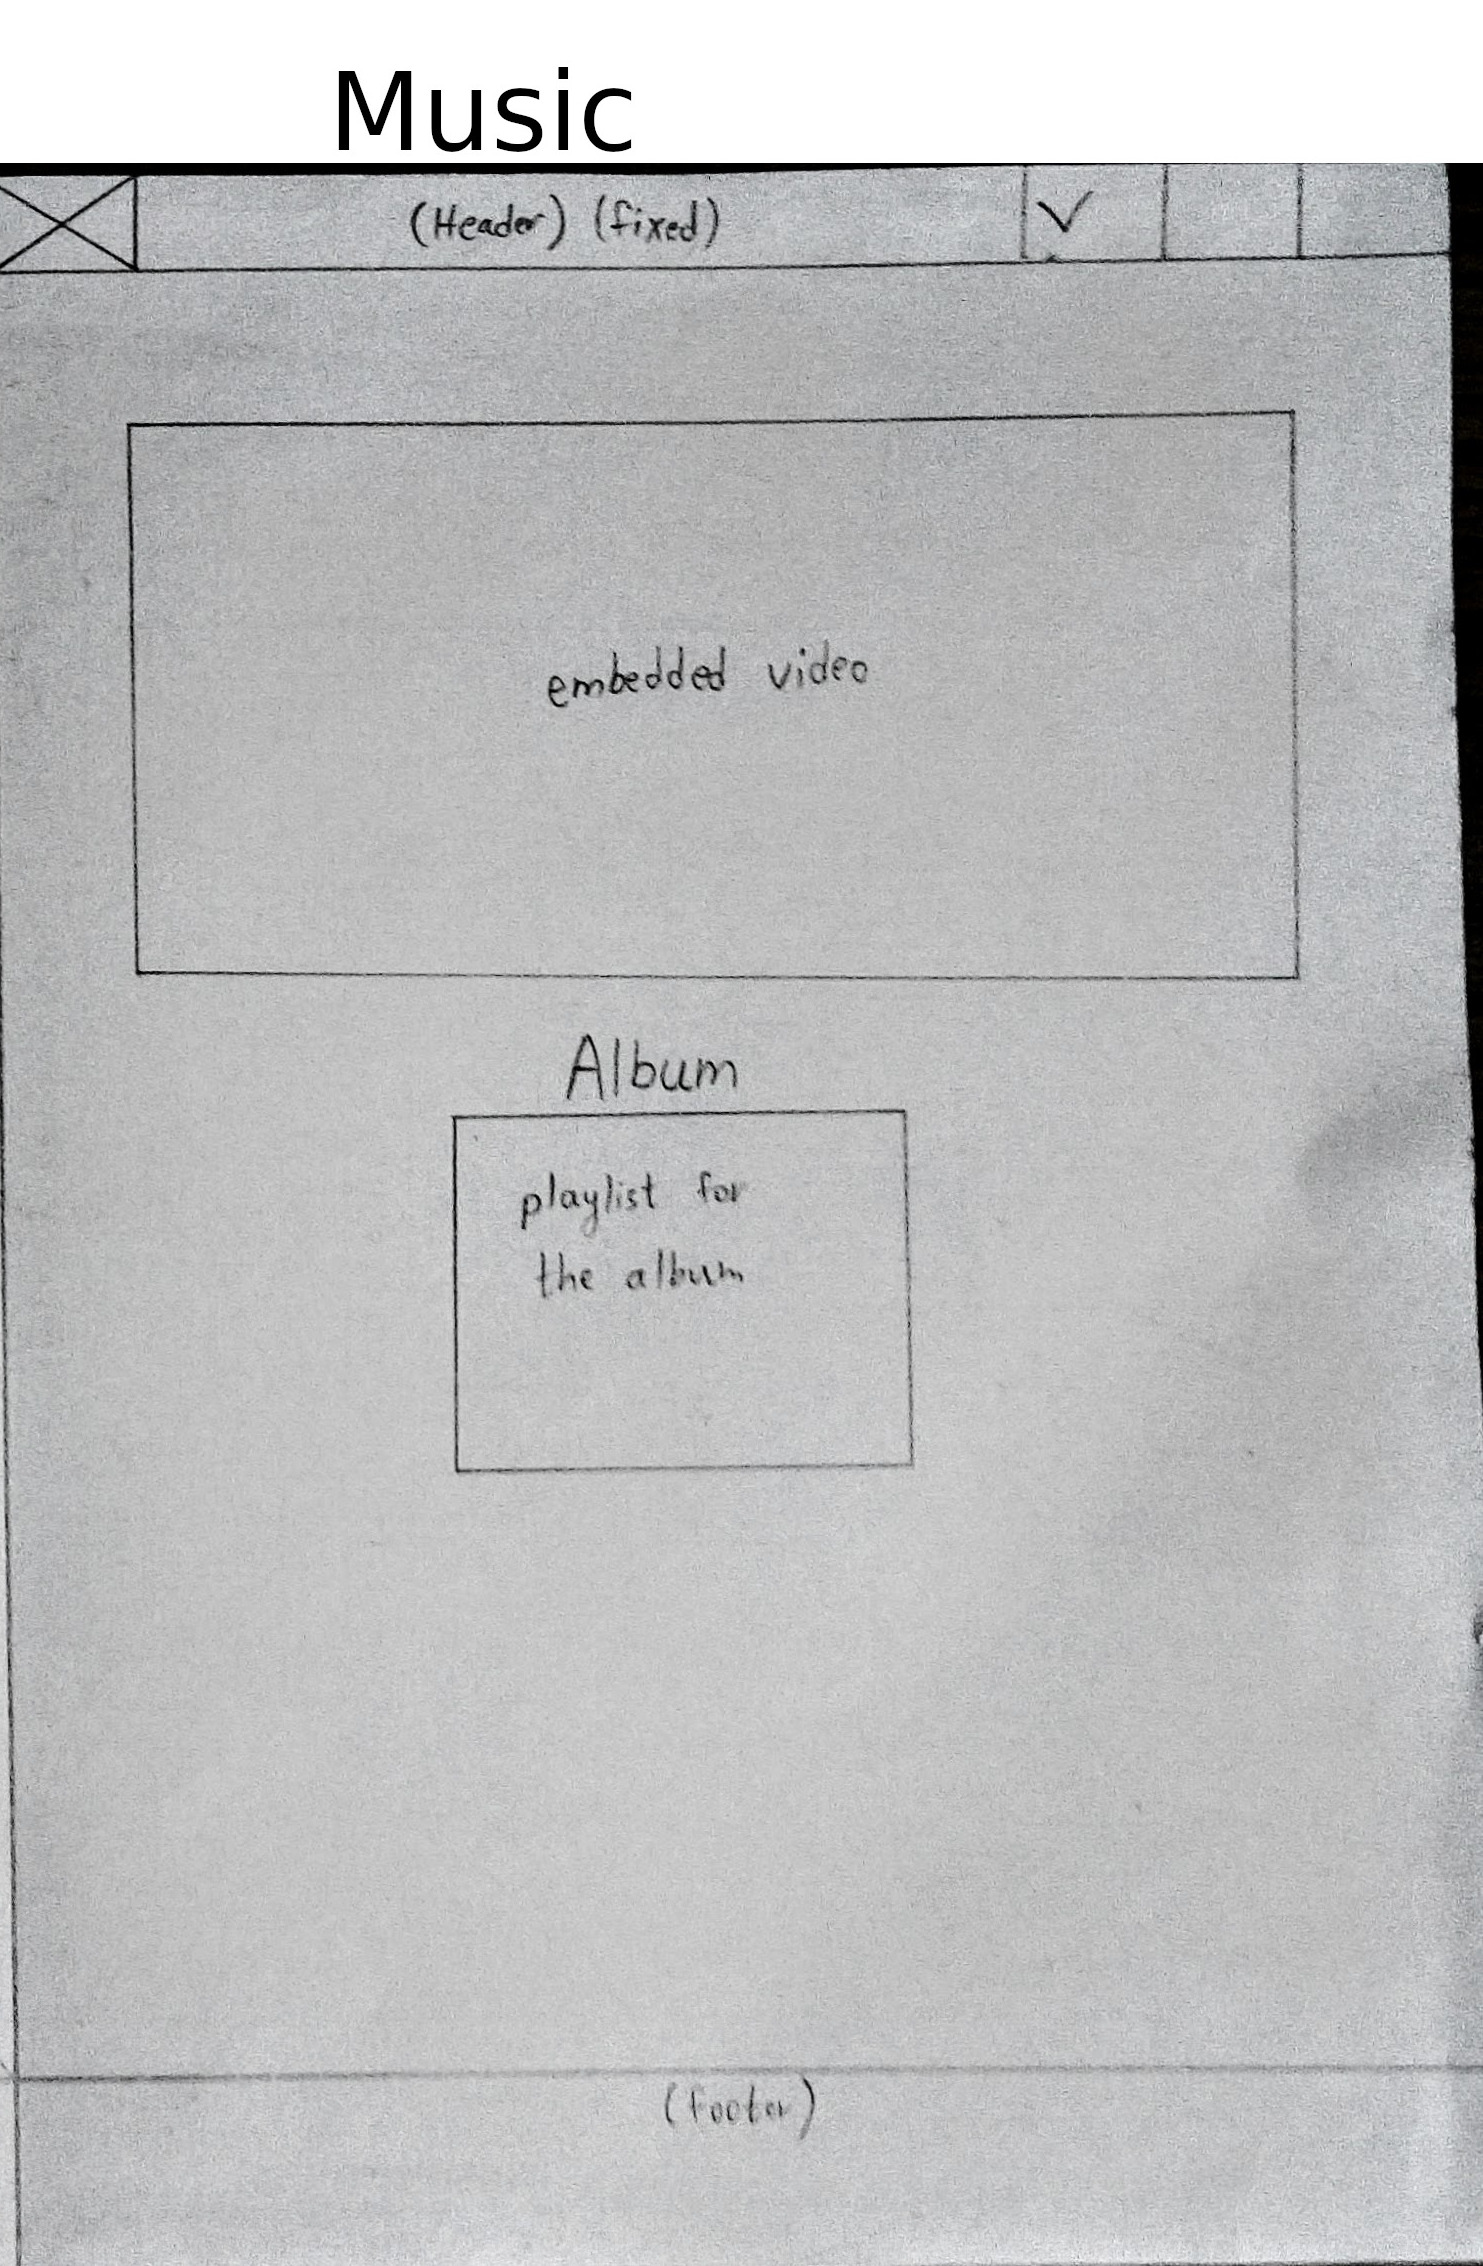 Music
(Header) (fixed)
embedded video
Album
playlist for
the album
(footer)